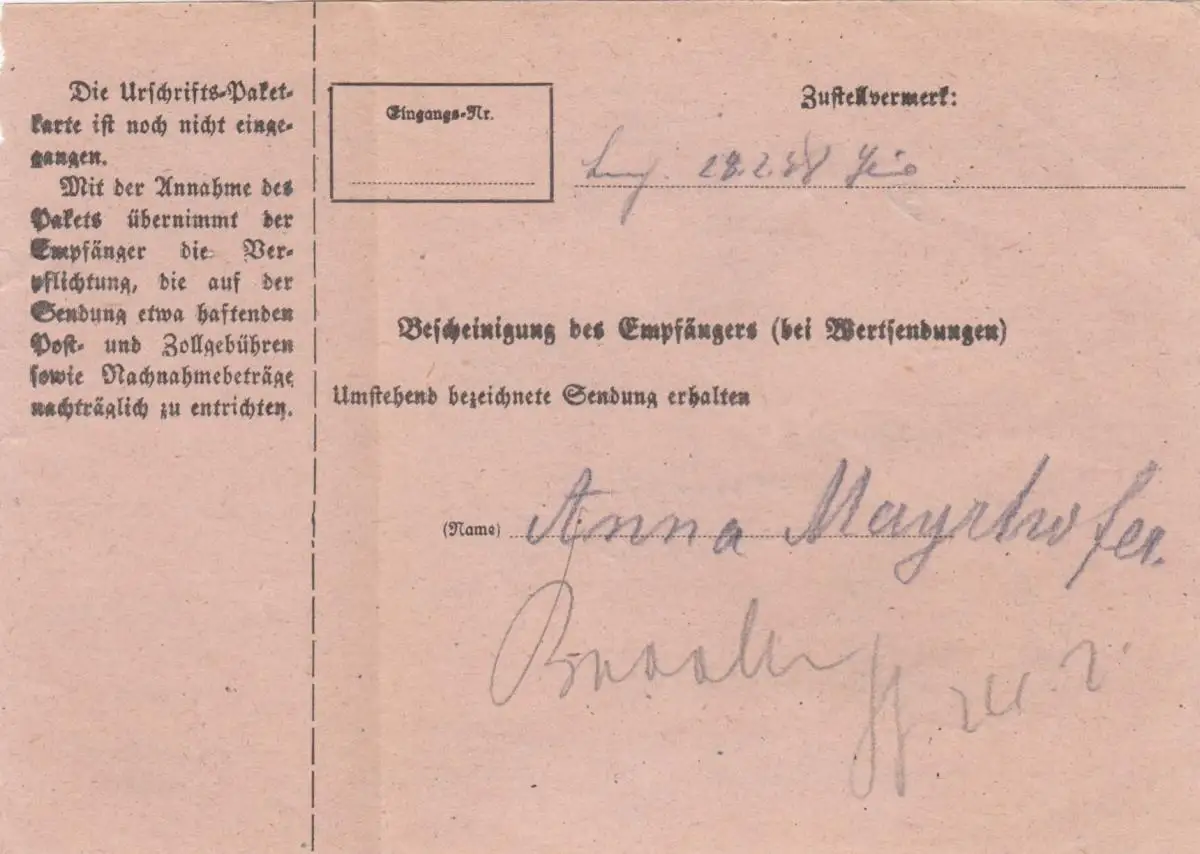 Die Urschrifts-Paket-
karte ist noch nicht einge-
gangen.
Mit der Annahme des
Pakets übernimmt der
Empfänger die Ver-
pflichtung, die auf der
Sendung etwa haftenden
Post- und Zollgebühren
sowie Nachnahmebeträge
nachträglich zu entrichten.
Eingangs-Nr.
Zustellvermerk:
28.2.48
Bescheinigung des Empfängers (bei Wertsendungen)
Umstehend bezeichnete Sendung erhalten
(Name) Anna Mayrhofer